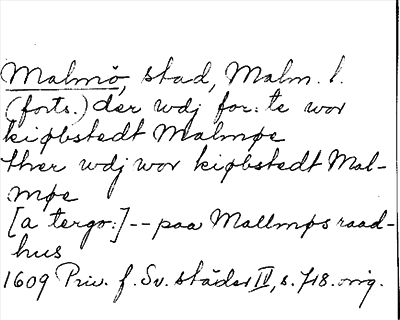 Malmö, stad, Malm. l.
(forts.) der wdj for:te wor
kiøbstedt Malmøe
ther wdj wor kiøbstedt Mal-
møe
[a tergo:] -- paa Mallmøs raad-
hus
1609 Priv. f. Sv. städer IV, s. 718. orig.